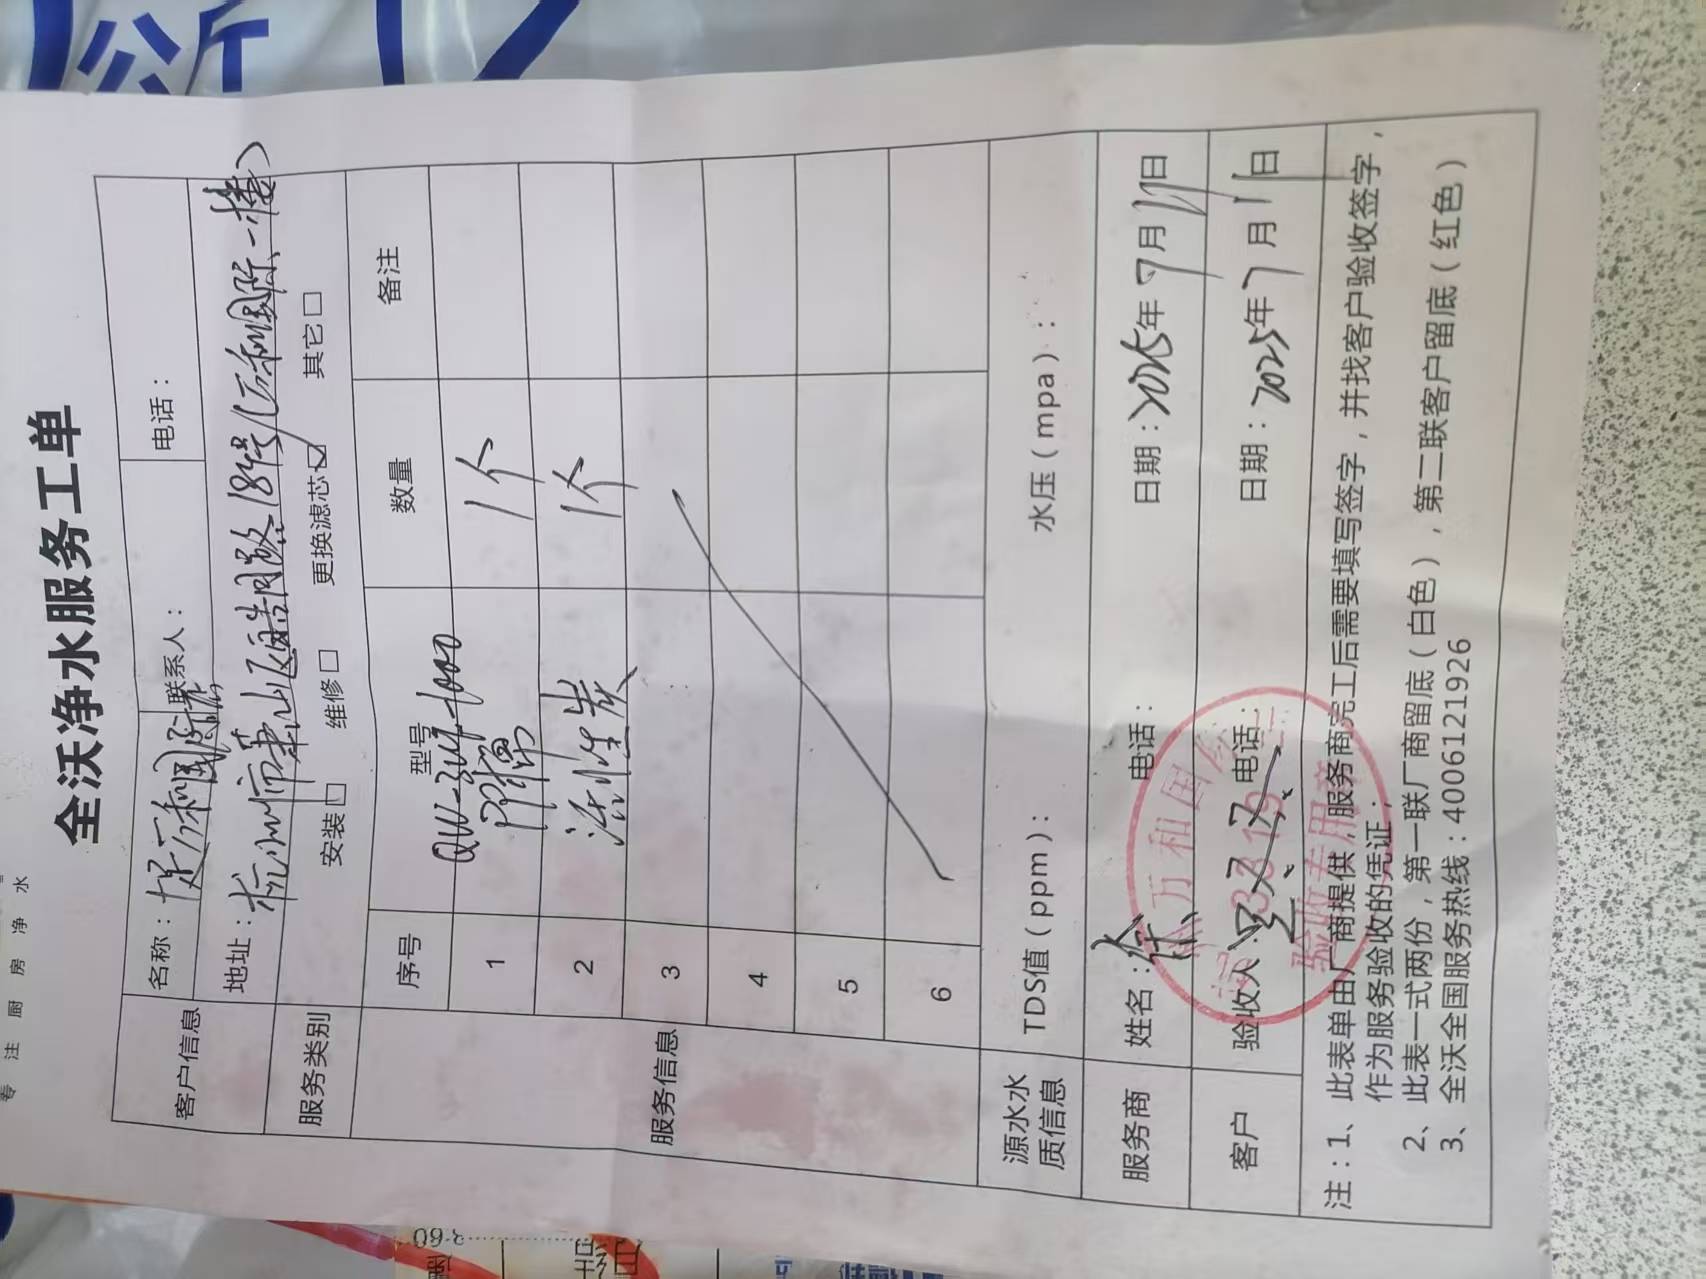 专注厨房净水
全沃净水服务工单
客户信息 名称： 万和国际 联系人： 电话：
地址：杭州市萧山区通惠中路184号(万和国际一楼)
服务类别 安装□ 维修□ 更换滤芯☑ 其它□
服务信息 序号 型号 数量 备注
1 QW-3UF-1000 PP棉 1个
2 活性炭 1个
3
4
5
6
源水水质信息 TDS值（ppm）： 水压（mpa）：
服务商 姓名：徐 电话： 日期：2025年7月11日
客户 验收人： 电话： 日期：2025年7月11日
万和国际
验收专用章
注：1、此表单由厂商提供，服务商完工后需要填写签字，并找客户验收签字，
作为服务验收的凭证；
2、此表一式两份，第一联厂商留底（白色），第二联客户留底（红色）
3、全沃全国服务热线：4006121926